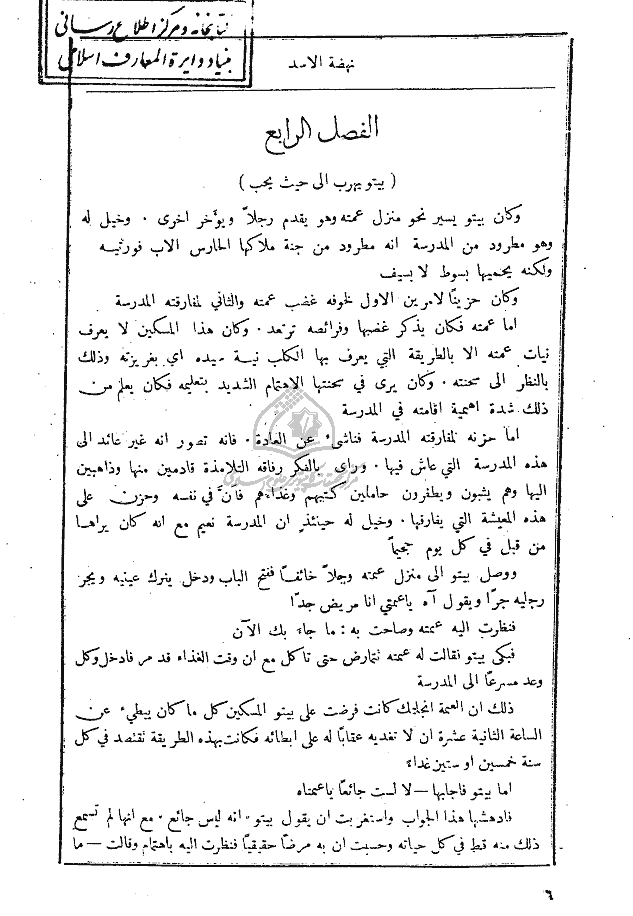 كتابخانه ومركز اطلاع رساني
بنياد دايرة المعارف اسلامي
نهضة الاسد
الفصل الرابع
( بيتو يهرب الى حيث يحب )
وكان بيتو يسير نحو منزل عمته وهو يقدم رجلاً ويؤخر اخرى . وخيل له
وهو مطرود من المدرسة انه مطرود من جنة ملاكها الحارس الاب فورتيه
ولكنه يحميها بسوط لا بسيف
وكان حزينًا لامرين الاول لخوفه غضب عمته والثاني لمفارقته المدرسة
اما عمته فكان يذكر غضبها وفرائصه ترتعد . وكان هذا المسكين لا يعرف
نيات عمته الا بالطريقة التي يعرف بها الكلب نية سيده اي بغريزته وذلك
بالنظر الى سحنته . وكان يرى في سحنتها الاهتمام الشديد بتعليمه فكان يعلم من
ذلك شدة اهمية اقامته في المدرسة
اما حزنه لمفارقته المدرسة فناشىء عن العادة . فانه تصور انه غير عائد الى
هذه المدرسة التي عاش فيها . وراى بالفكر رفاقه التلامذة قادمين منها وذاهبين
اليها وهم يثبون ويطفرون حاملين كتبهم وغذاءهم فانَّ في نفسه وحزن على
هذه المعيشة التي يفارقها . وخيل له حينئذٍ ان المدرسة نعيم مع انه كان يراها
من قبل في كل يوم جحيماً
ووصل بيتو الى منزل عمته وجلاً خائفًا ففتح الباب ودخل يفرك عينيه ويجر
رجليه جرًا ويقول آه ياعمتي انا مريض جدًا
فنظرت اليه عمته وصاحت به : ما جاء بك الآن
فبكى بيتو فقالت له عمته تتمارض حتى تاكل مع ان وقت الغذاء قد مر فادخل وكل
وعد مسرعًا الى المدرسة
ذلك ان العمة انجليك كانت فرضت على بيتو المسكين كل ما كان يبطيء عن
الساعة الثانية عشرة ان لا تغديه عقابًا له على ابطائه فكانت بهذه الطريقة تقتصد في كل
سنة خمسين او ستين غداء
اما بيتو فاجابها — لا لست جائعًا ياعمتاه
فادهشها هذا الجواب واستغربت ان يقول بيتو . انه ليس جائع . مع انها لم تسمع
ذلك منه قط في كل حياته وحسبت ان به مرضًا حقيقيًا فنظرت اليه باهتمام وقالت — ما
٦